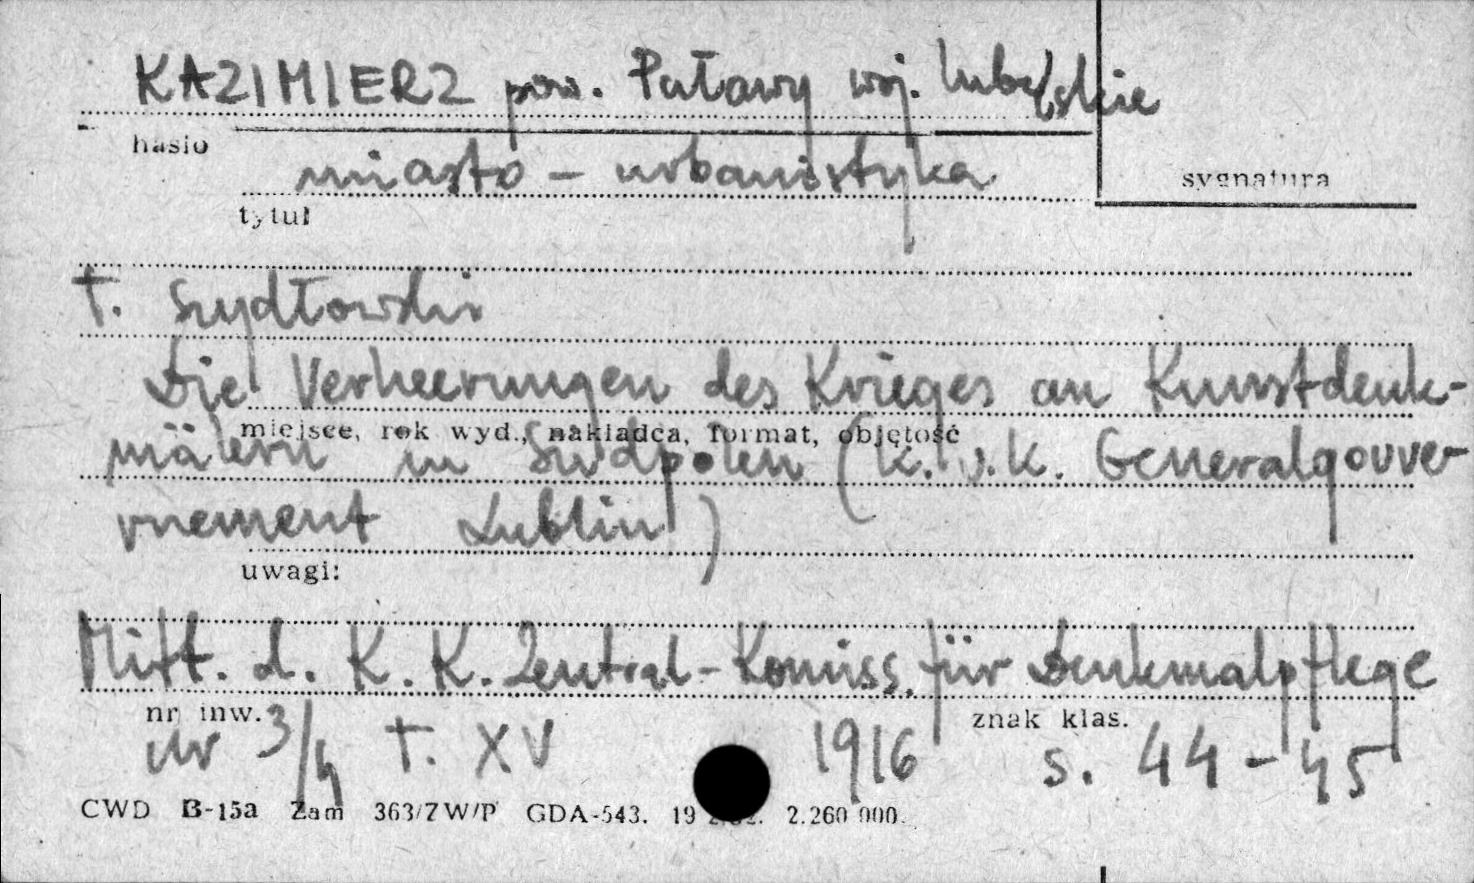 KAZIMIERZ pow. Puławy woj. lubelskie
hasło
miasto – urbanistyka
sygnatura
tytuł
T. Szydłowski
Die Verheerungen des Krieges an Kunstdenk-
miejsce, rok wyd., nakładca, format, objętość
mälern in Südpolen (K. u. K. Generalgouve-
rnement Lublin)
uwagi:
Mitt. d. K. K. Zentral-Komiss. für Denkmalpflege
nr inw. znak klas.
nr 3/4 T. XV 1916 s. 44-45
CWD B-15a Zam 363/ZW/P GDA-543. 19 2.260 000.